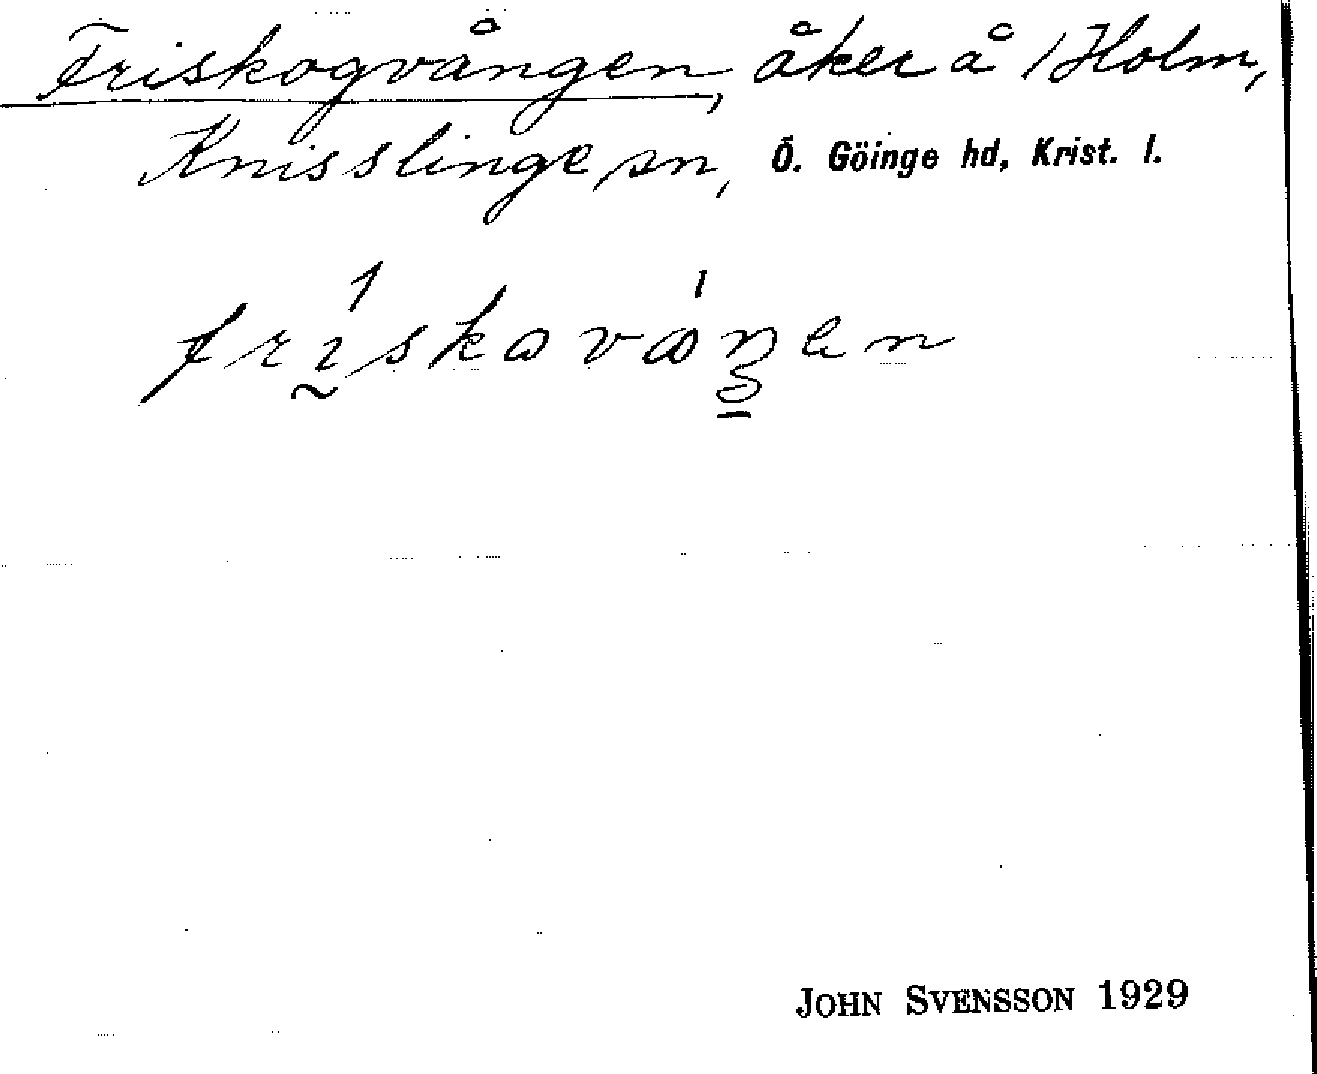 Friskogvången, åker å 1 Holm,
Knisslinge sn, Ö. Göinge hd, Krist. l.
friskavaŋen
JOHN SVENSSON 1929